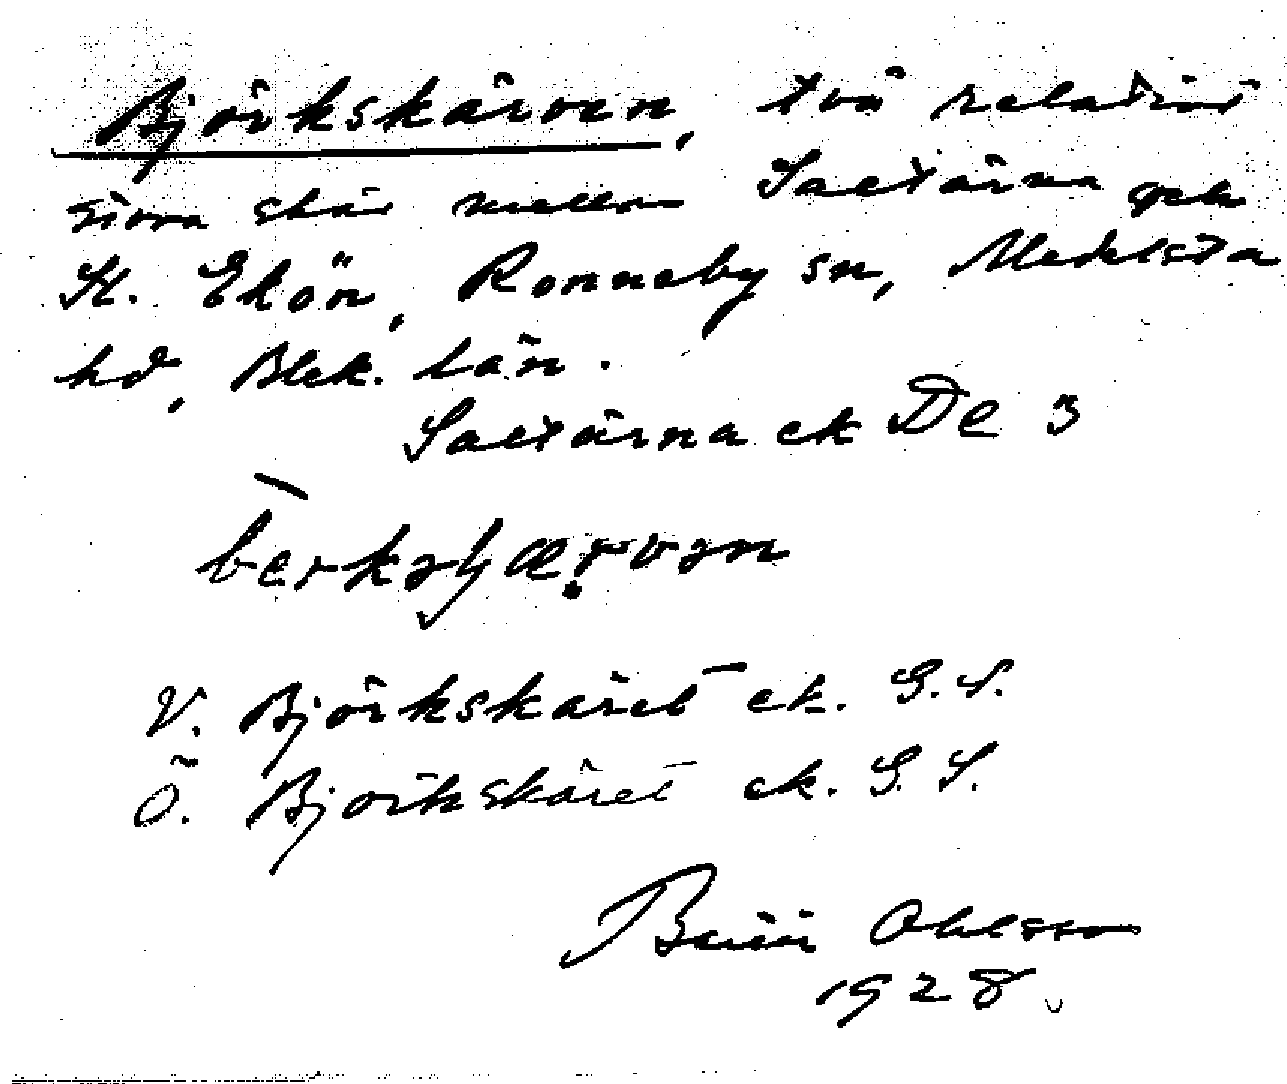 Björkskärven, två relativt
stora skär mellan Saltärna och
St. Ekön, Ronneby sn, Medelsta
hd, Blek. län.
Saltärna ek De 3
bèrkskærvən
V. Björkskäret ek. G.S.
Ö. Björkskäret ek. G.S.
Ohlsson
1928.